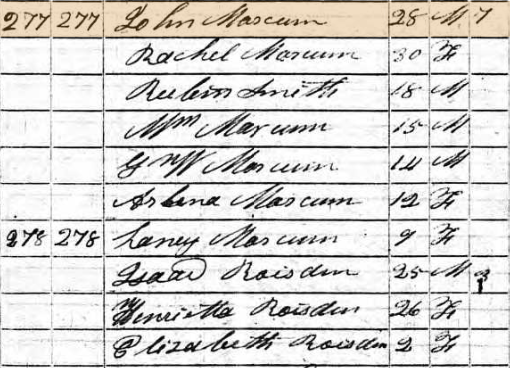 277 277 John Marcum 28 M 7
Rachel Marcum 30 F
Rubin Smith 18 M
Wm Marcum 15 M
G W Marcum 14 M
Arlena Marcum 12 F
278 278 Laney Marcum 9 F
Isaac Roisden 25 M
Henrietta Roisden 26 F
Elizabeth Roisden 2 F